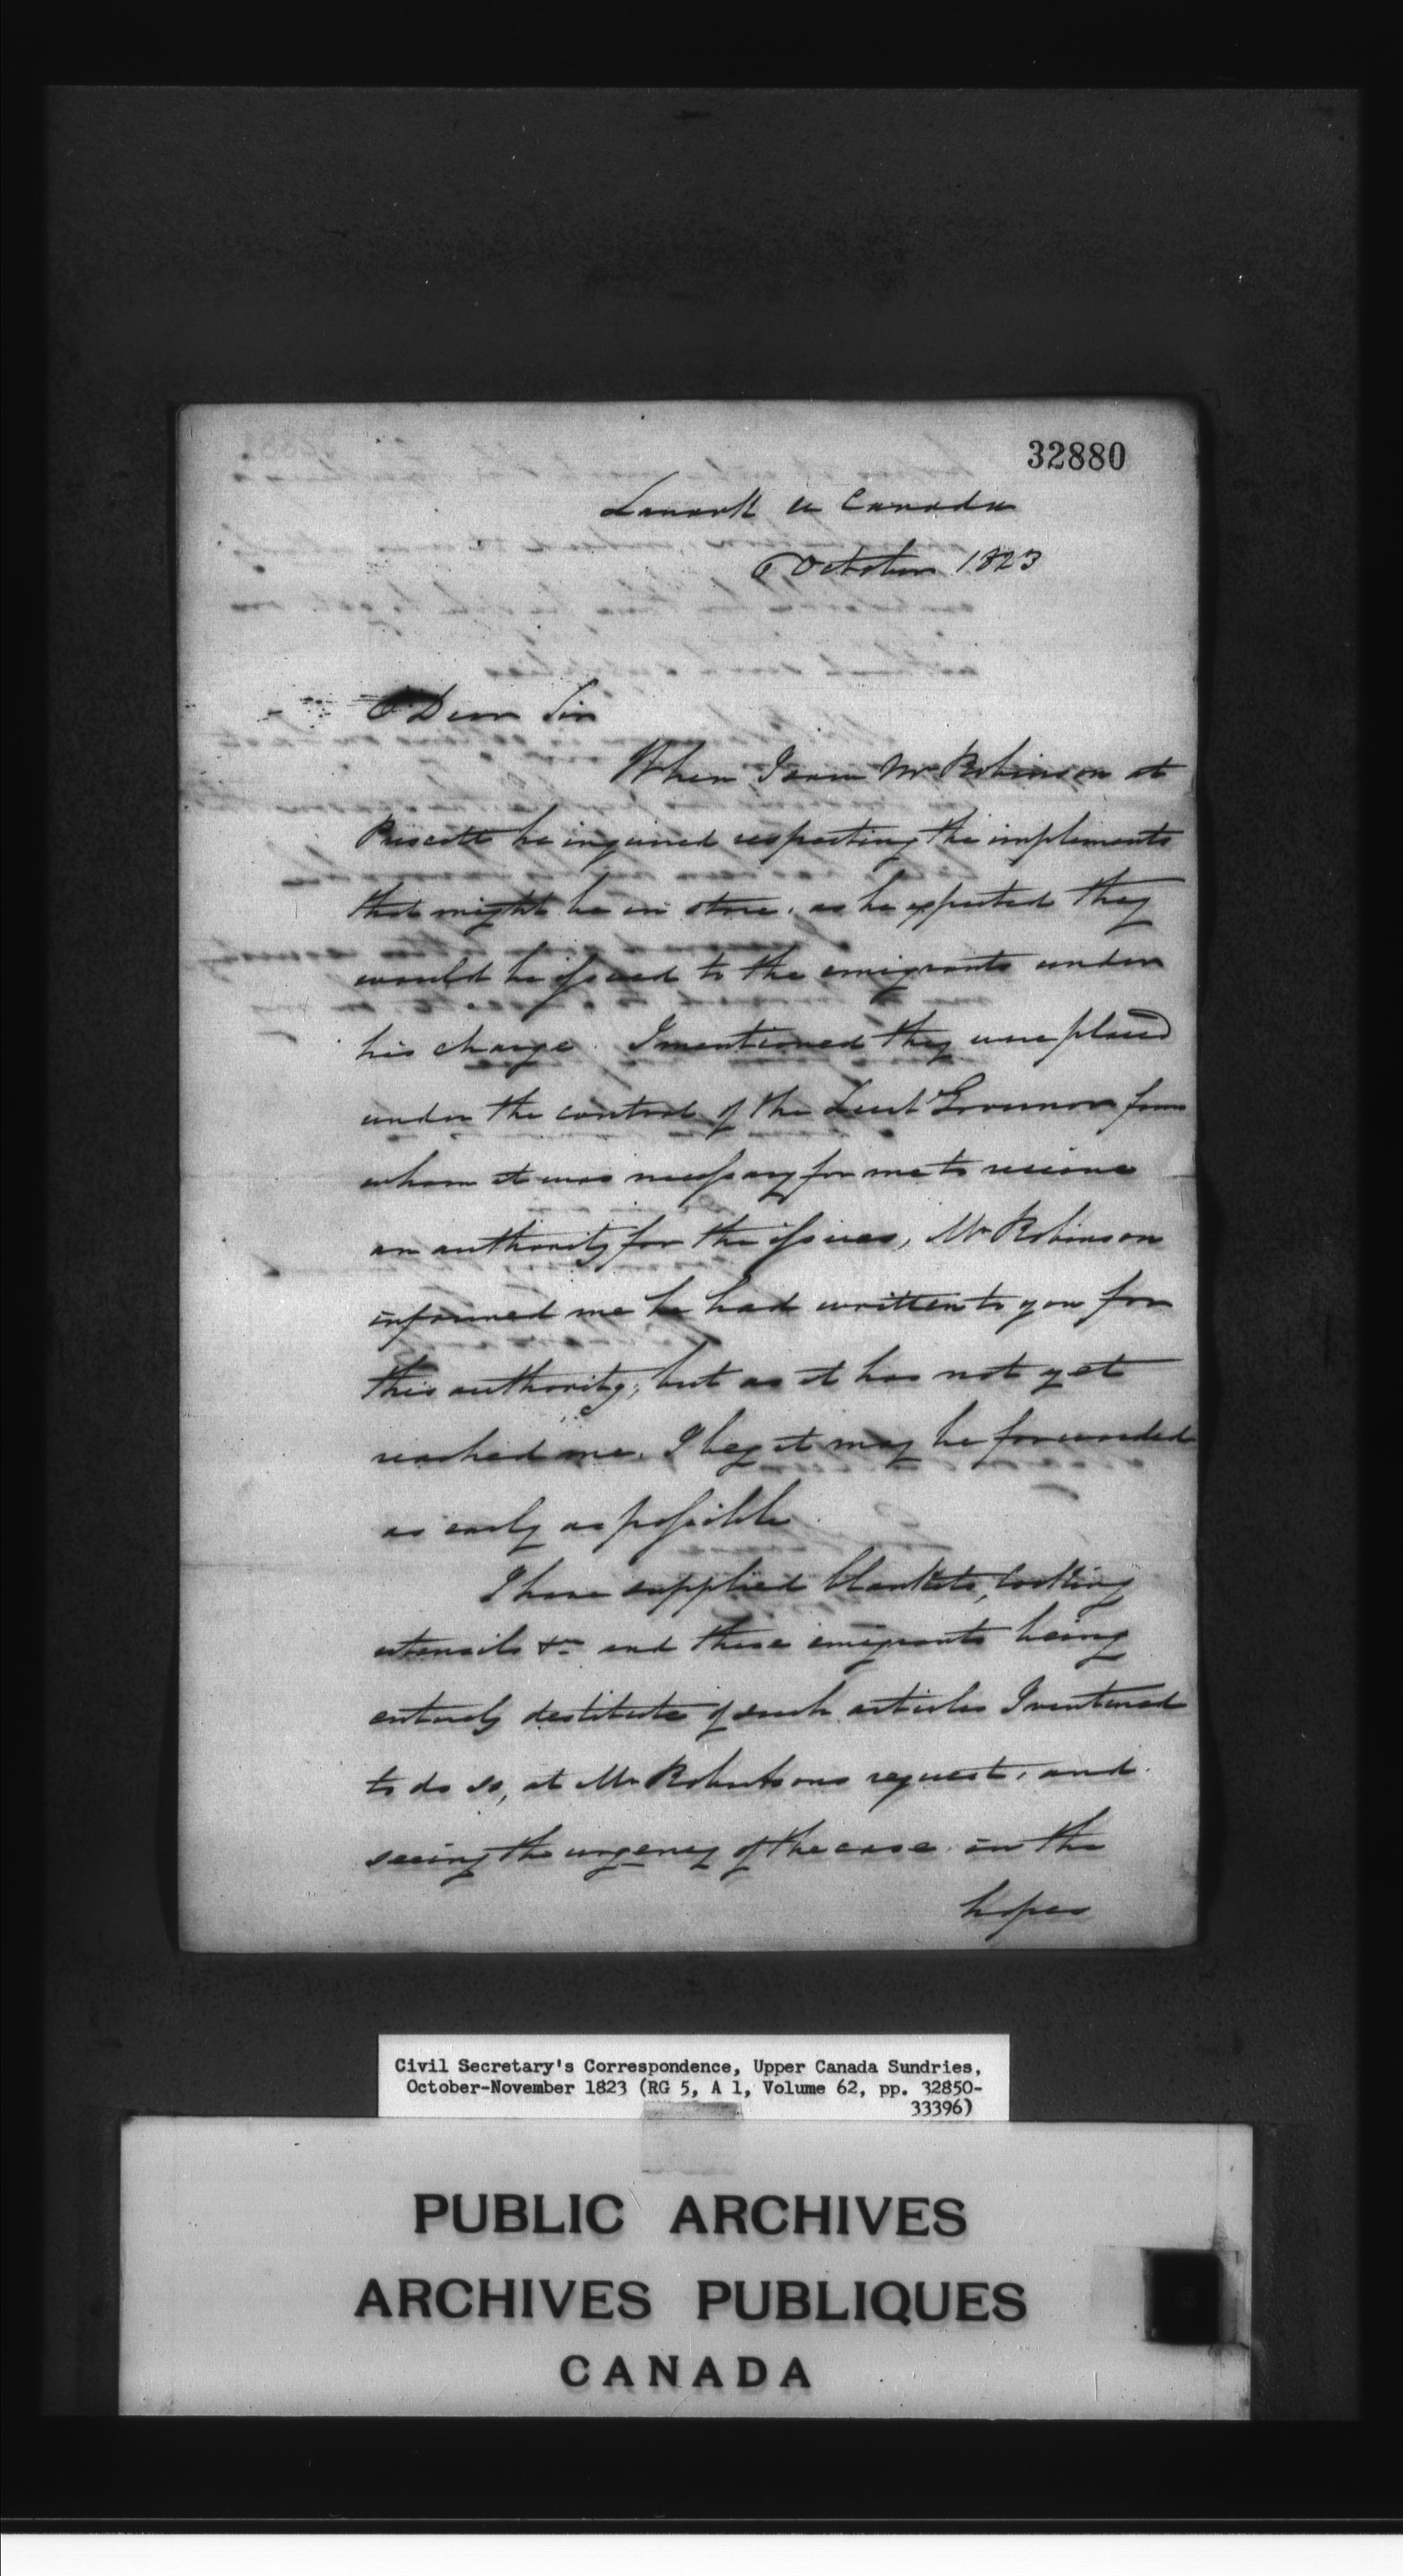 32880
Lanark U Canada
6 October 1823
Dear Sir
When I saw Mr Robinson at
Prescott he inquired respecting the impliments
that might be in store, as he expected they
would be issued to the emigrants under
his charge. I mentioned they were placed
under the control of the Lieut Governor from
whom it was necessary for me to receive
an authority for the issues, Mr Robinson
informed me he had written to you for
this authority; but as it has not yet
reached me, I beg it may be forwarded
as early as possible.
I have supplied blankets, cooking
utensils &c and these emigrants being
entirely destitute of such articles I ventured
to do so, at Mr Robinsons request, and
seeing the urgency of the case in the
hopes
Civil Secretary's Correspondence, Upper Canada Sundries,
October-November 1823 (RG 5, A 1, Volume 62, pp. 32850-
33396)
PUBLIC ARCHIVES
ARCHIVES PUBLIQUES
CANADA